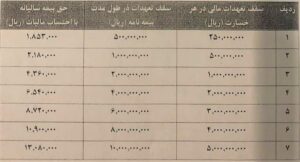 ردیف سقف تعهدات مالی در هر خسارت (ریال) سقف تعهدات در طول مدت بیمه نامه (ریال) حق بیمه سالیانه با احتساب مالیات (ریال)
۱ ۲۵۰,۰۰۰,۰۰۰ ۵۰۰,۰۰۰,۰۰۰ ۱,۸۵۳,۰۰۰
۲ ۵۰۰,۰۰۰,۰۰۰ ۱,۰۰۰,۰۰۰,۰۰۰ ۲,۱۸۰,۰۰۰
۳ ۱,۰۰۰,۰۰۰,۰۰۰ ۲,۰۰۰,۰۰۰,۰۰۰ ۴,۳۶۰,۰۰۰
۴ ۲,۰۰۰,۰۰۰,۰۰۰ ۴,۰۰۰,۰۰۰,۰۰۰ ۶,۵۴۰,۰۰۰
۵ ۳,۰۰۰,۰۰۰,۰۰۰ ۶,۰۰۰,۰۰۰,۰۰۰ ۸,۷۲۰,۰۰۰
۶ ۴,۰۰۰,۰۰۰,۰۰۰ ۸,۰۰۰,۰۰۰,۰۰۰ ۱۰,۹۰۰,۰۰۰
۷ ۵,۰۰۰,۰۰۰,۰۰۰ ۱۰,۰۰۰,۰۰۰,۰۰۰ ۱۳,۰۸۰,۰۰۰